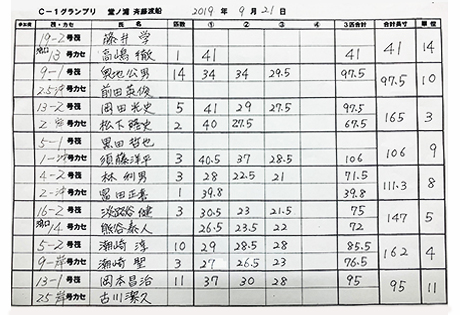 C-1グランプリ 堂ノ浦 斉藤渡船 2019 年 9 月 21 日
筏・カセ 氏 名 匹数 ① ② ③ ④ ⑤ 3匹合計 合計長寸 順 位
19-2 号筏 藤井 学
13 号カセ 高嶋 徹 1 41 41 41 14
9-1 号筏 奥地公男 14 34 34 29.5 97.5 97.5 10
25 号カセ 前田英俊
13-2 号筏 岡田光史 5 41 29 27.5 97.5 165 3
2 号カセ 松下隆史 2 40 27.5 67.5
5-1 号筏 黒田哲也 106 9
1 号カセ 須藤洋平 3 40.5 37 28.5 106
4-2 号筏 林 利男 3 28 22.5 21 71.5 111.3 8
2 号カセ 冨田正喜 1 39.8 39.8
16-2 号筏 淡路谷 健 3 30.5 23 21.5 75 147 5
14 号カセ 熊谷泰人 26.5 23.5 22 72
5-2 号筏 潮崎 淳 10 29 28.5 28 85.5 162 4
9 号カセ 潮崎 聖 3 27 26.5 23 76.5
13-1 号筏 岡本昌治 11 37 30 28 95 95 11
25 号カセ 古川潔久